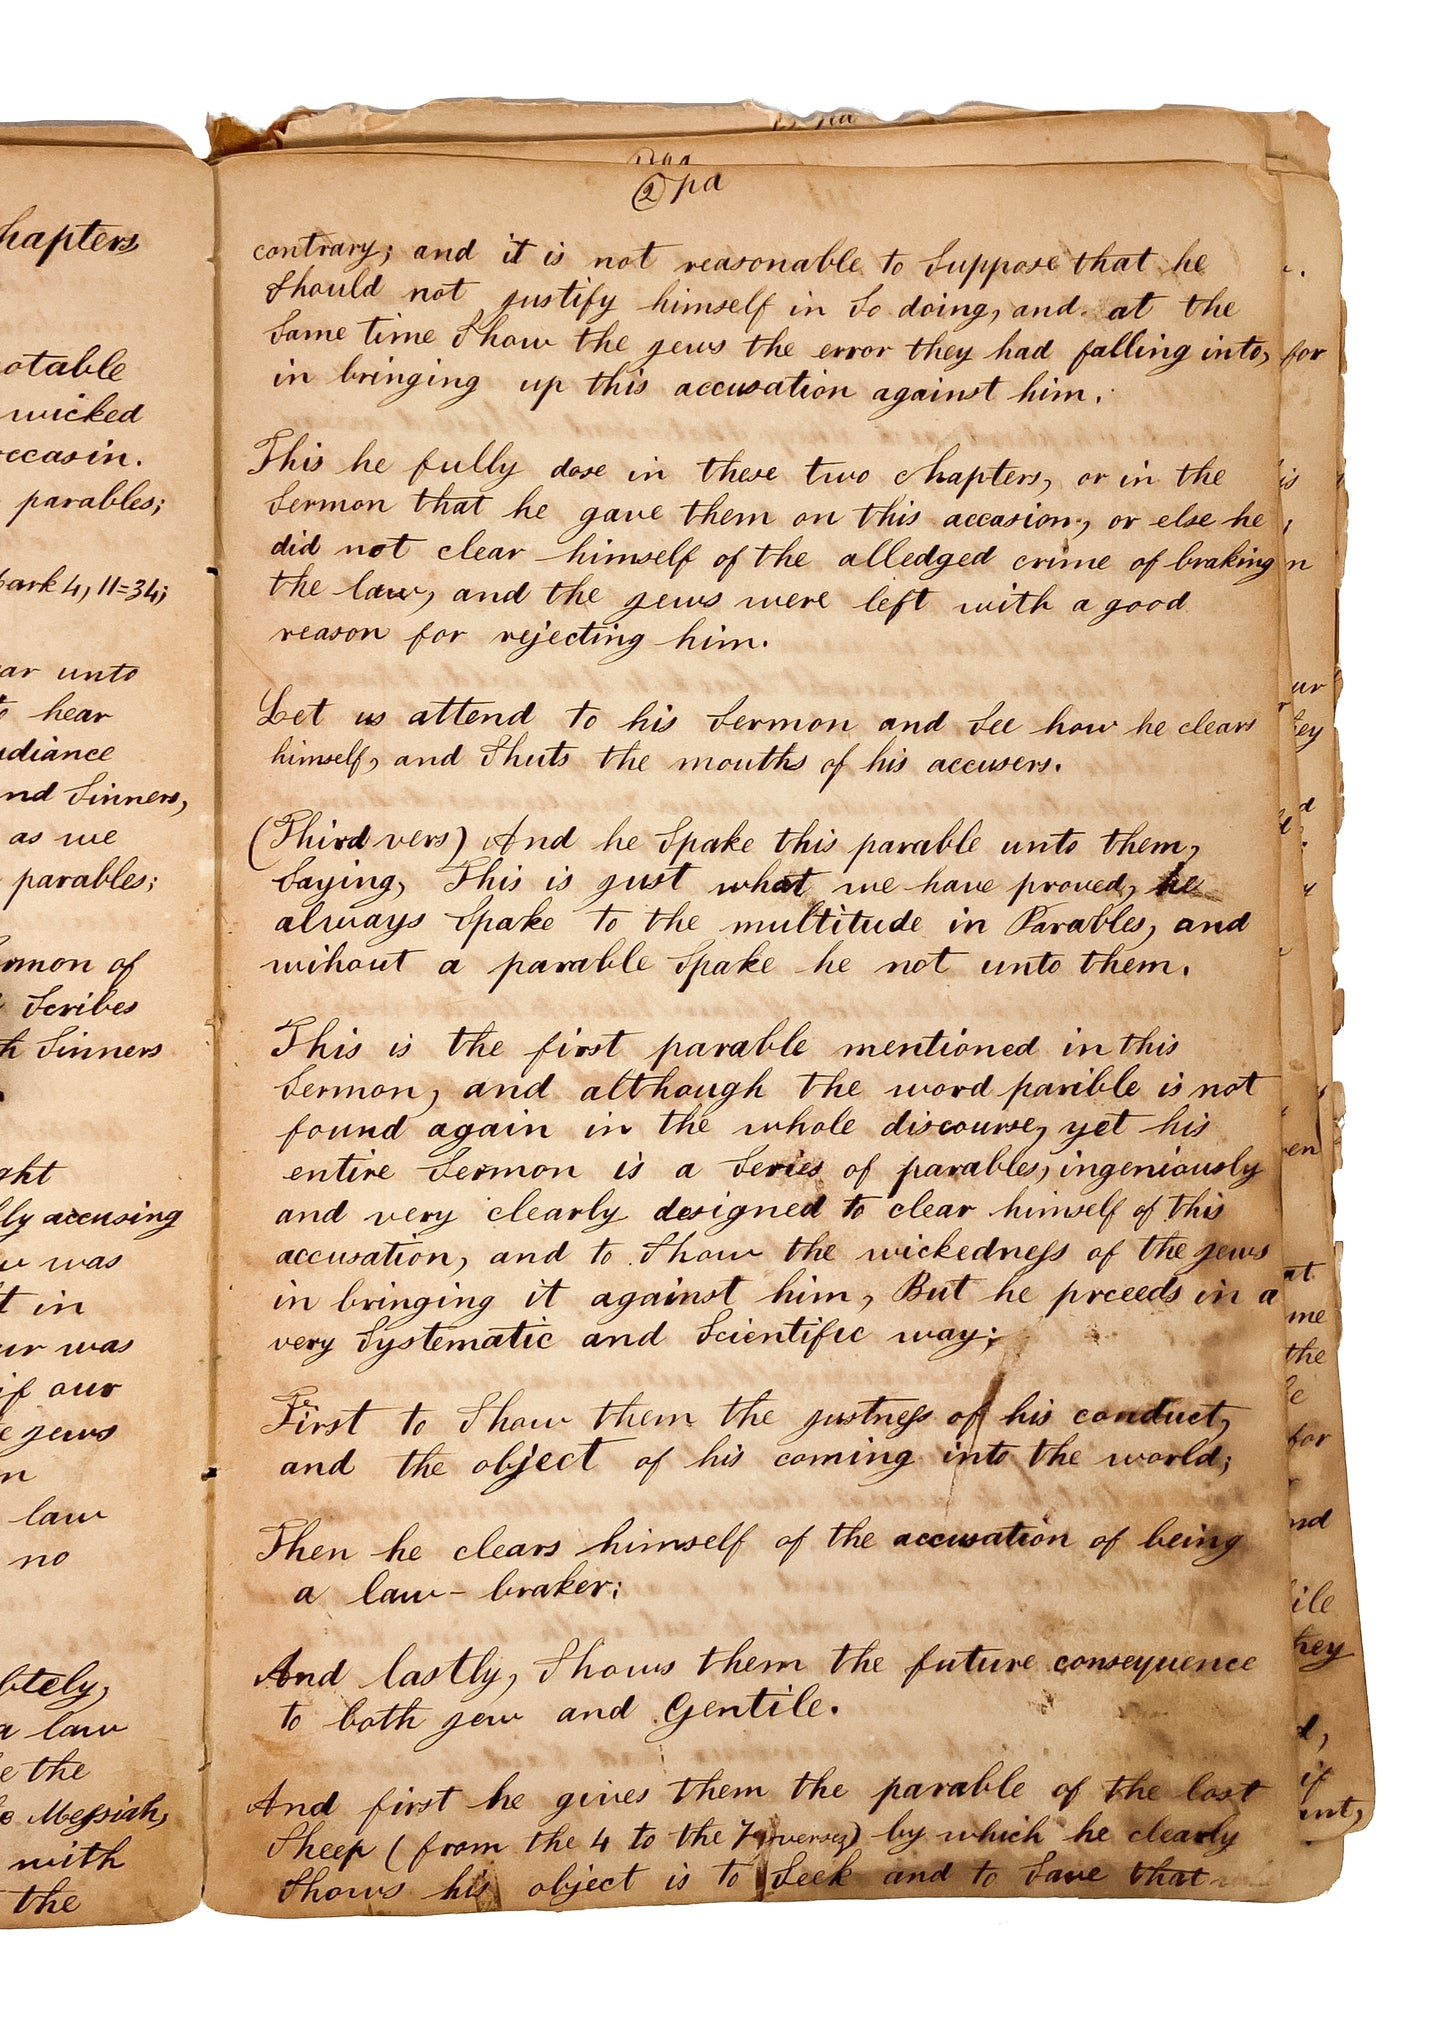 hapters
otable
wicked
ccasin.
parables;
ark 4, 11=34;
ar unto
to hear
udiance
nd Sinners,
as we
parables;
ermon of
Scribes
th Sinners
ght
lly accusing
w was
t in
ur was
if our
e jews
n
law
no
btely,
a law
e the
e Messiah,
with
the
② pa
contrary; and it is not reasonable to Suppose that he
Should not justify himself in So doing, and at the
Same time Show the jews the error they had falling into, for
in bringing up this accusation against him.
This he fully dose in these two chapters, or in the
Sermon that he gave them on this accasion, or else he
did not clear himself of the alledged crime of braking
the law, and the jews were left with a good
reason for rejecting him.
Let us attend to his Sermon and See how he clears
himself, and Shuts the mouths of his accusers.
(Third vers) And he Spake this parable unto them,
Saying, This is just what we have proved, he
always Spake to the multitude in Parables, and
wihout a parable Spake he not unto them.
This is the first parable mentioned in this
Sermon, and although the word parible is not
found again in the whole discourse, yet his
entire Sermon is a Series of parables, ingeniously
and very clearly designed to clear himself of this
accusation, and to Show the wickedness of the jews
in bringing it against him, But he prceeds in a
very Systematic and Scientific way;
First to Show them the justness of his conduct,
and the object of his coming into the world;
Then he clears himself of the accusation of being
a law-braker;
And lastly, Shows them the future consequence
to both jew and Gentile.
And first he gives them the parable of the lost
Sheep (from the 4 to the 7 verses) by which he clearly
Shows his object is to Seek and to Save that
is
n
ur
ey
d
en
at
me
the
e
for
nd
ile
hey
d,
if
ent,